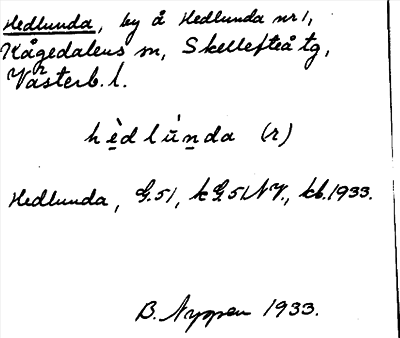 Hedlunda, by å Hedlunda nr 1,
Kågedalens sn, Skellefteå tg,
Västerb. l.
hèdlu̇́nda (r)
Hedlunda, G.51, kG.51NV., kb.1933.
B. Nyppen 1933.